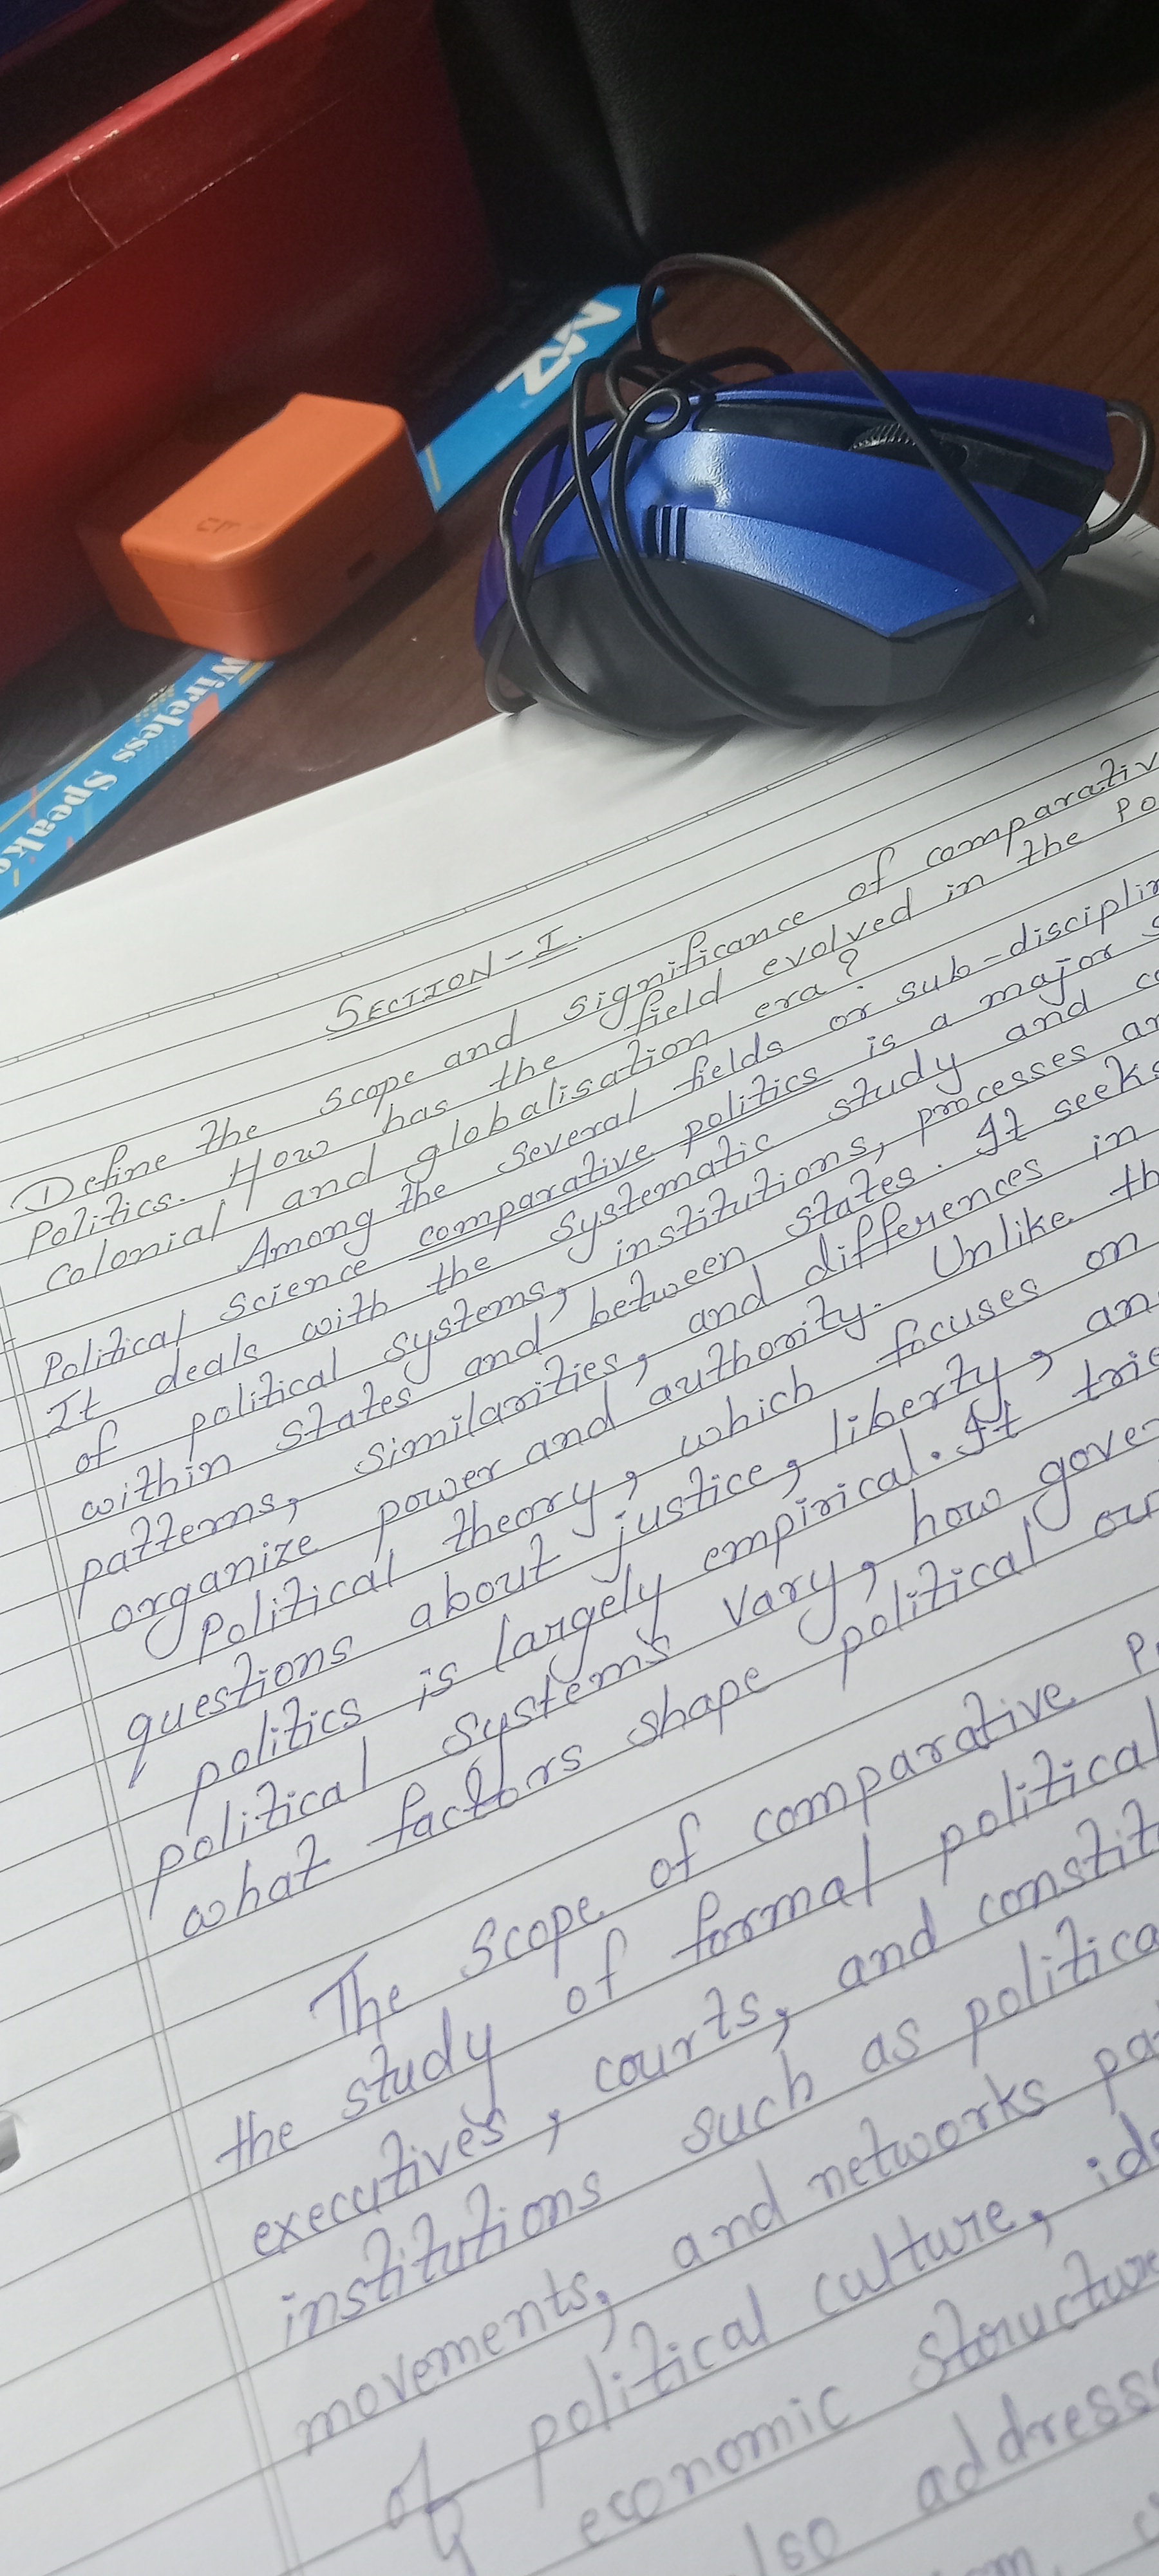 MZ
Wireless Speake
SECTION-I.
Define the scope and significance of comparativ
Politics. How has the field evolved in the Po
Colonial and globalisation era?
Among the several fields or sub-disciplin
Political Science comparative politics is a major s
It deals with the systematic study and co
of political systems, institutions, processes an
within states and between states. It seeks
patterns, similarities, and differences in
organize power and authority. Unlike th
Political theory, which focuses on
questions about justice, liberty, an
politics is largely empirical. It trie
political systems vary, how gover
what factors shape political ou
The Scope of comparative P
the study of formal political
executives, courts, and constit
institutions such as politica
movements, and networks pa
of political culture, ide
economic structure
lso address